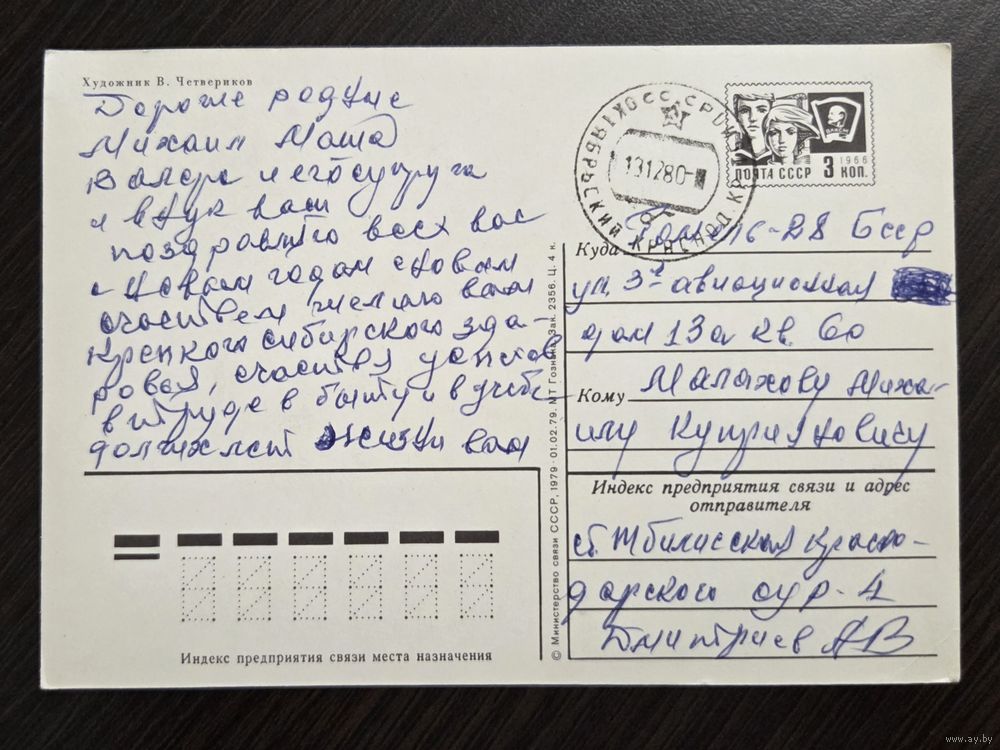 Художник В. Четвериков
Дорогие родные
Михаил Маша
Валера и его супруга
и внук ваш
поздравляю всех вас
с новым годом с новым
счастьем желаю вам
крепкого сибирского здо-
ровья, счастья успехов
в труде в быту и в учебе
долгих лет жизни вам
Индекс предприятия связи места назначения
© Министерство связи СССР, 1979 · 01.02.79. МТ Гознака. Зак. 2356. Ц. 4 к.
131280
ПОЧТА СССР
1966
3 КОП.
ВЛКСМ
Куда 16-28 Бсср
ул. 3я авиационная
дом 13а кв. 60
Кому Малахову Миха-
илу Куприяновичу
Индекс предприятия связи и адрес
отправителя
ст. Тбилисская красно-
дарского
Дмитриев АВ
www.ay.by